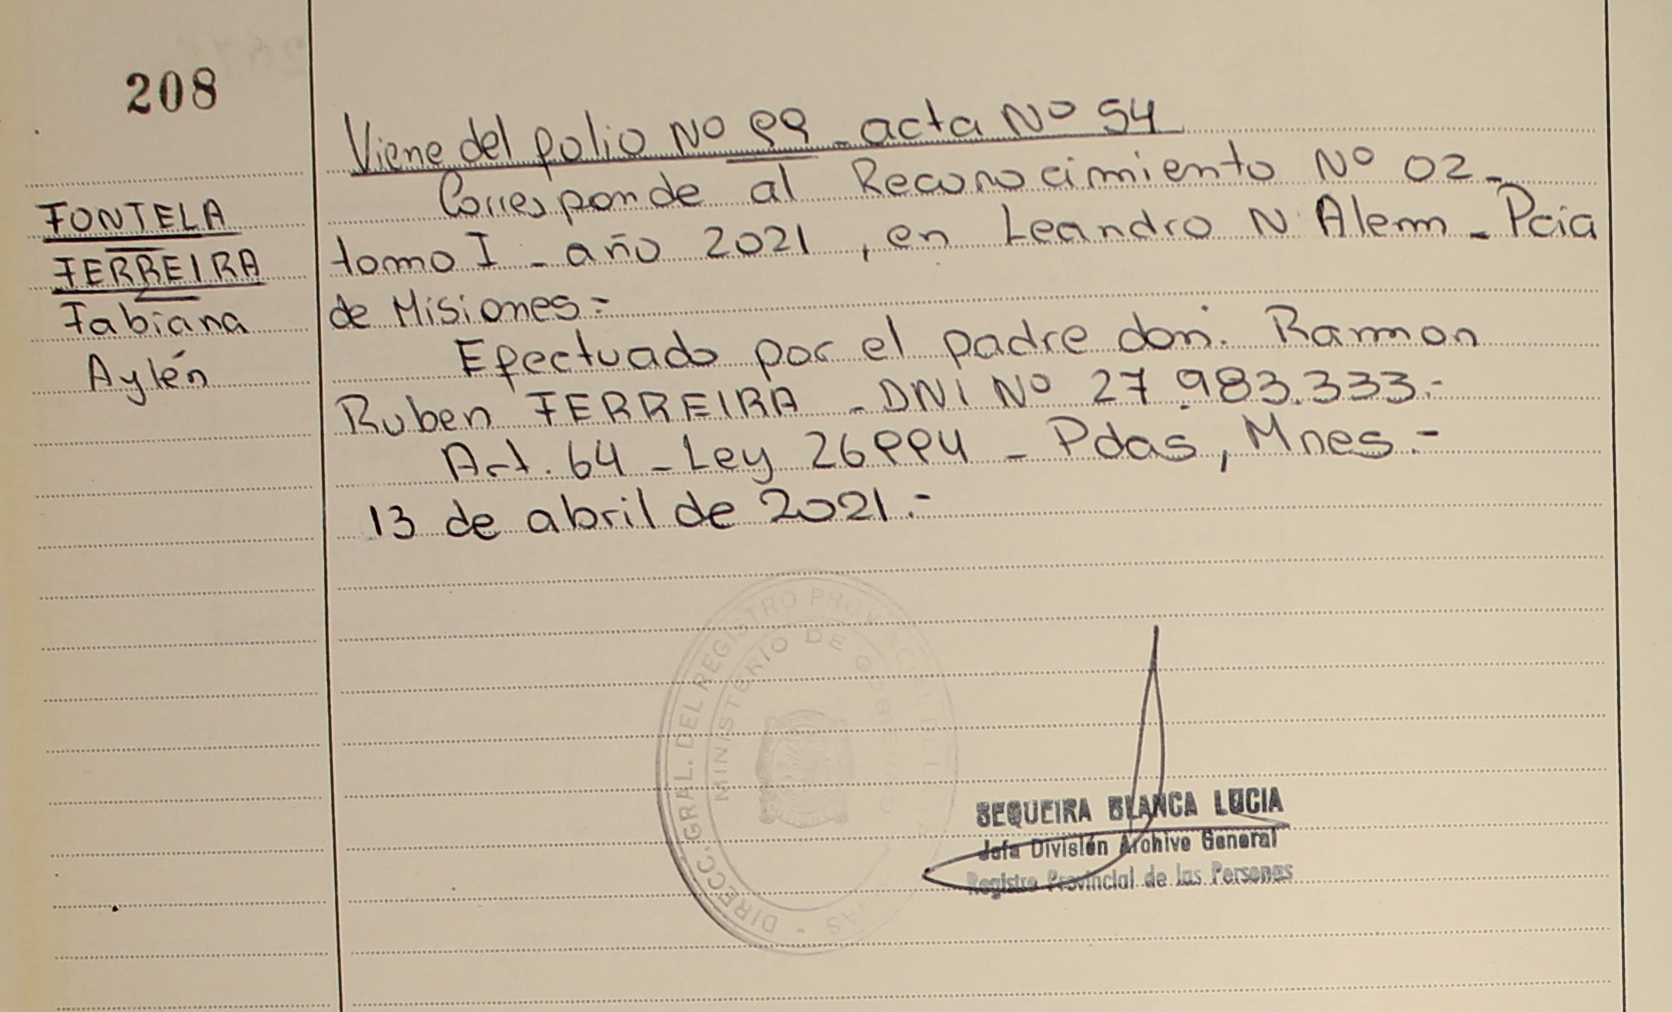 208
FONTELA
FERREIRA
Fabiana
Aylén
Viene del folio Nº 99 - acta Nº 54
Corresponde al Reconocimiento Nº 02 -
tomo I - año 2021, en Leandro N Alem - Pcia
de Misiones =
Efectuado por el padre don: Ramon
Ruben FERREIRA - DNI Nº 27.983.333.-
Art. 64 - Ley 26994 - Pdas, Mnes.-
13 de abril de 2021.-
DIRECC. GRAL. DEL REGISTRO PROVINCIAL DE LAS PERSONAS -
MINISTERIO DE GOBIERNO
SEQUEIRA BLANCA LUCIA
Jefa División Archivo General
Registro Provincial de las Personas